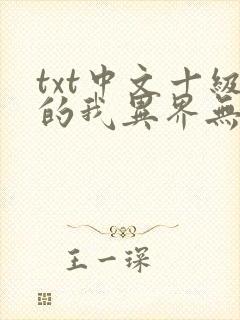 txt中文十级
的我異界無
王一琛